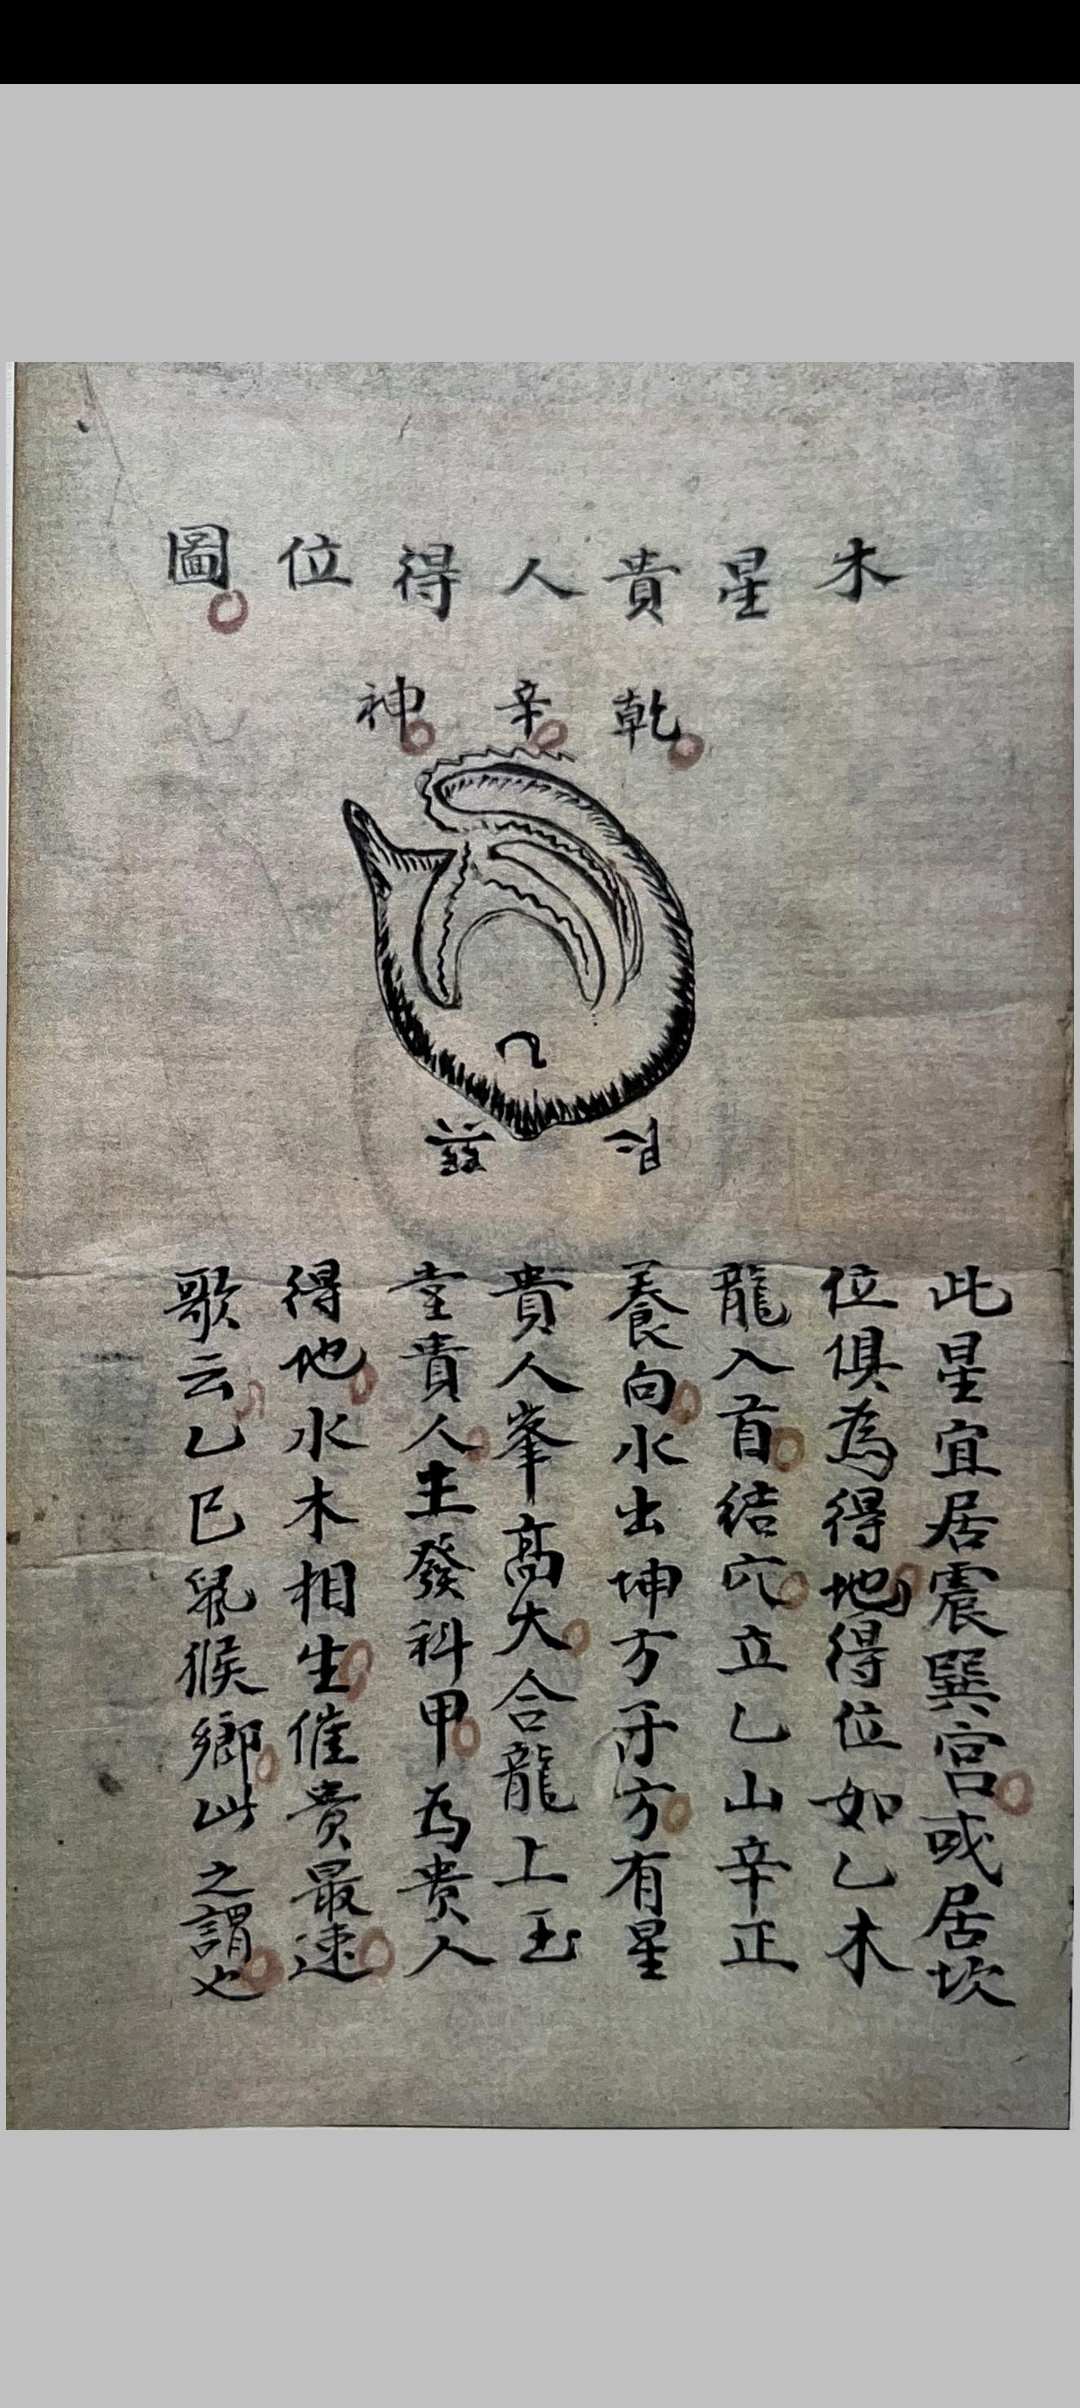 木星貴人得位圖
乾辛神
乙
此星宜居震巽宮或居坎
位俱為得地得位如乙木
龍入首結穴立乙山辛正
養向水出坤方子方有星
貴人峯高大合龍上玉
堂貴人主發科甲為貴人
得地水木相生催貴最速
歌云乙巳鼠猴鄉此之謂也